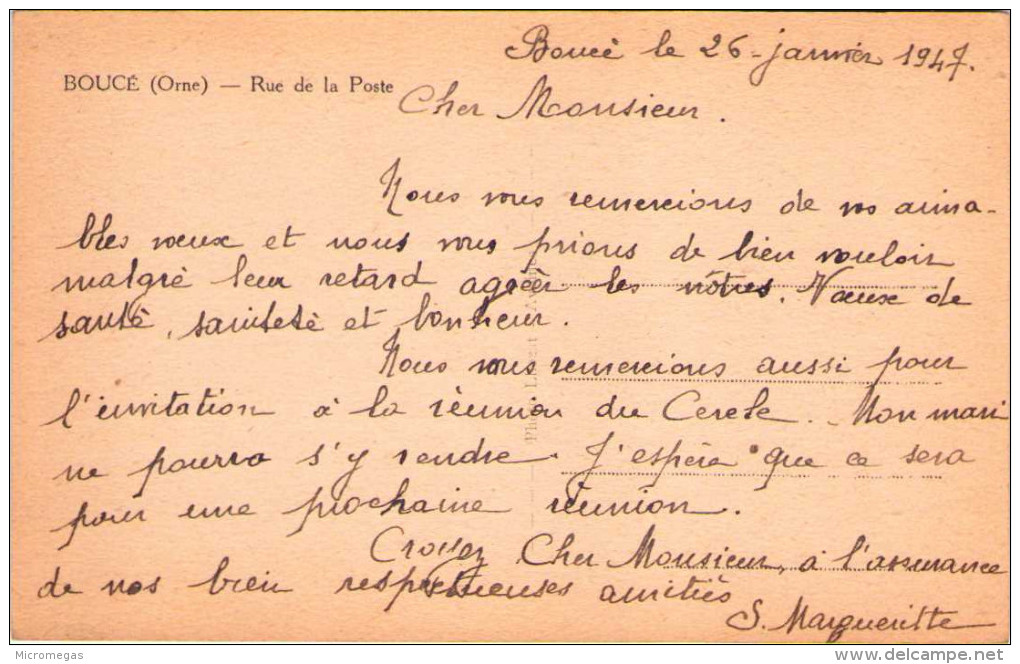 Boucé le 26 janvier 1947.
BOUCÉ (Orne) — Rue de la Poste
Cher Monsieur.
Nous vous remercions de vos aima-
bles vœux et nous vous prions de bien vouloir
malgré leur retard agréer les nôtres. Vœux de
santé, sainteté et bonheur.
Nous vous remercions aussi pour
l'invitation à la réunion du Cercle. Mon mari
ne pourra s'y rendre. J'espère que ce sera
pour une prochaine réunion.
Croyez Cher Monsieur, à l'assurance
de nos bien respectueuses amitiés
S. Margueritte
Micromegas
delcampe.net